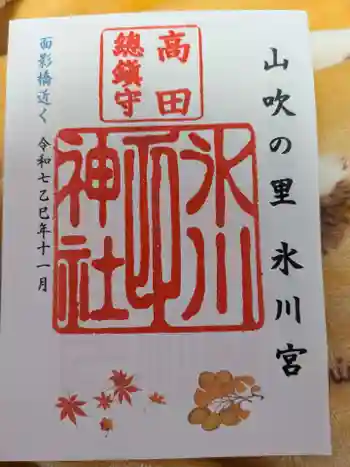 山吹の里 氷川宮
高田
總鎮守
氷川
神社
面影橋近く 令和七乙巳年十一月